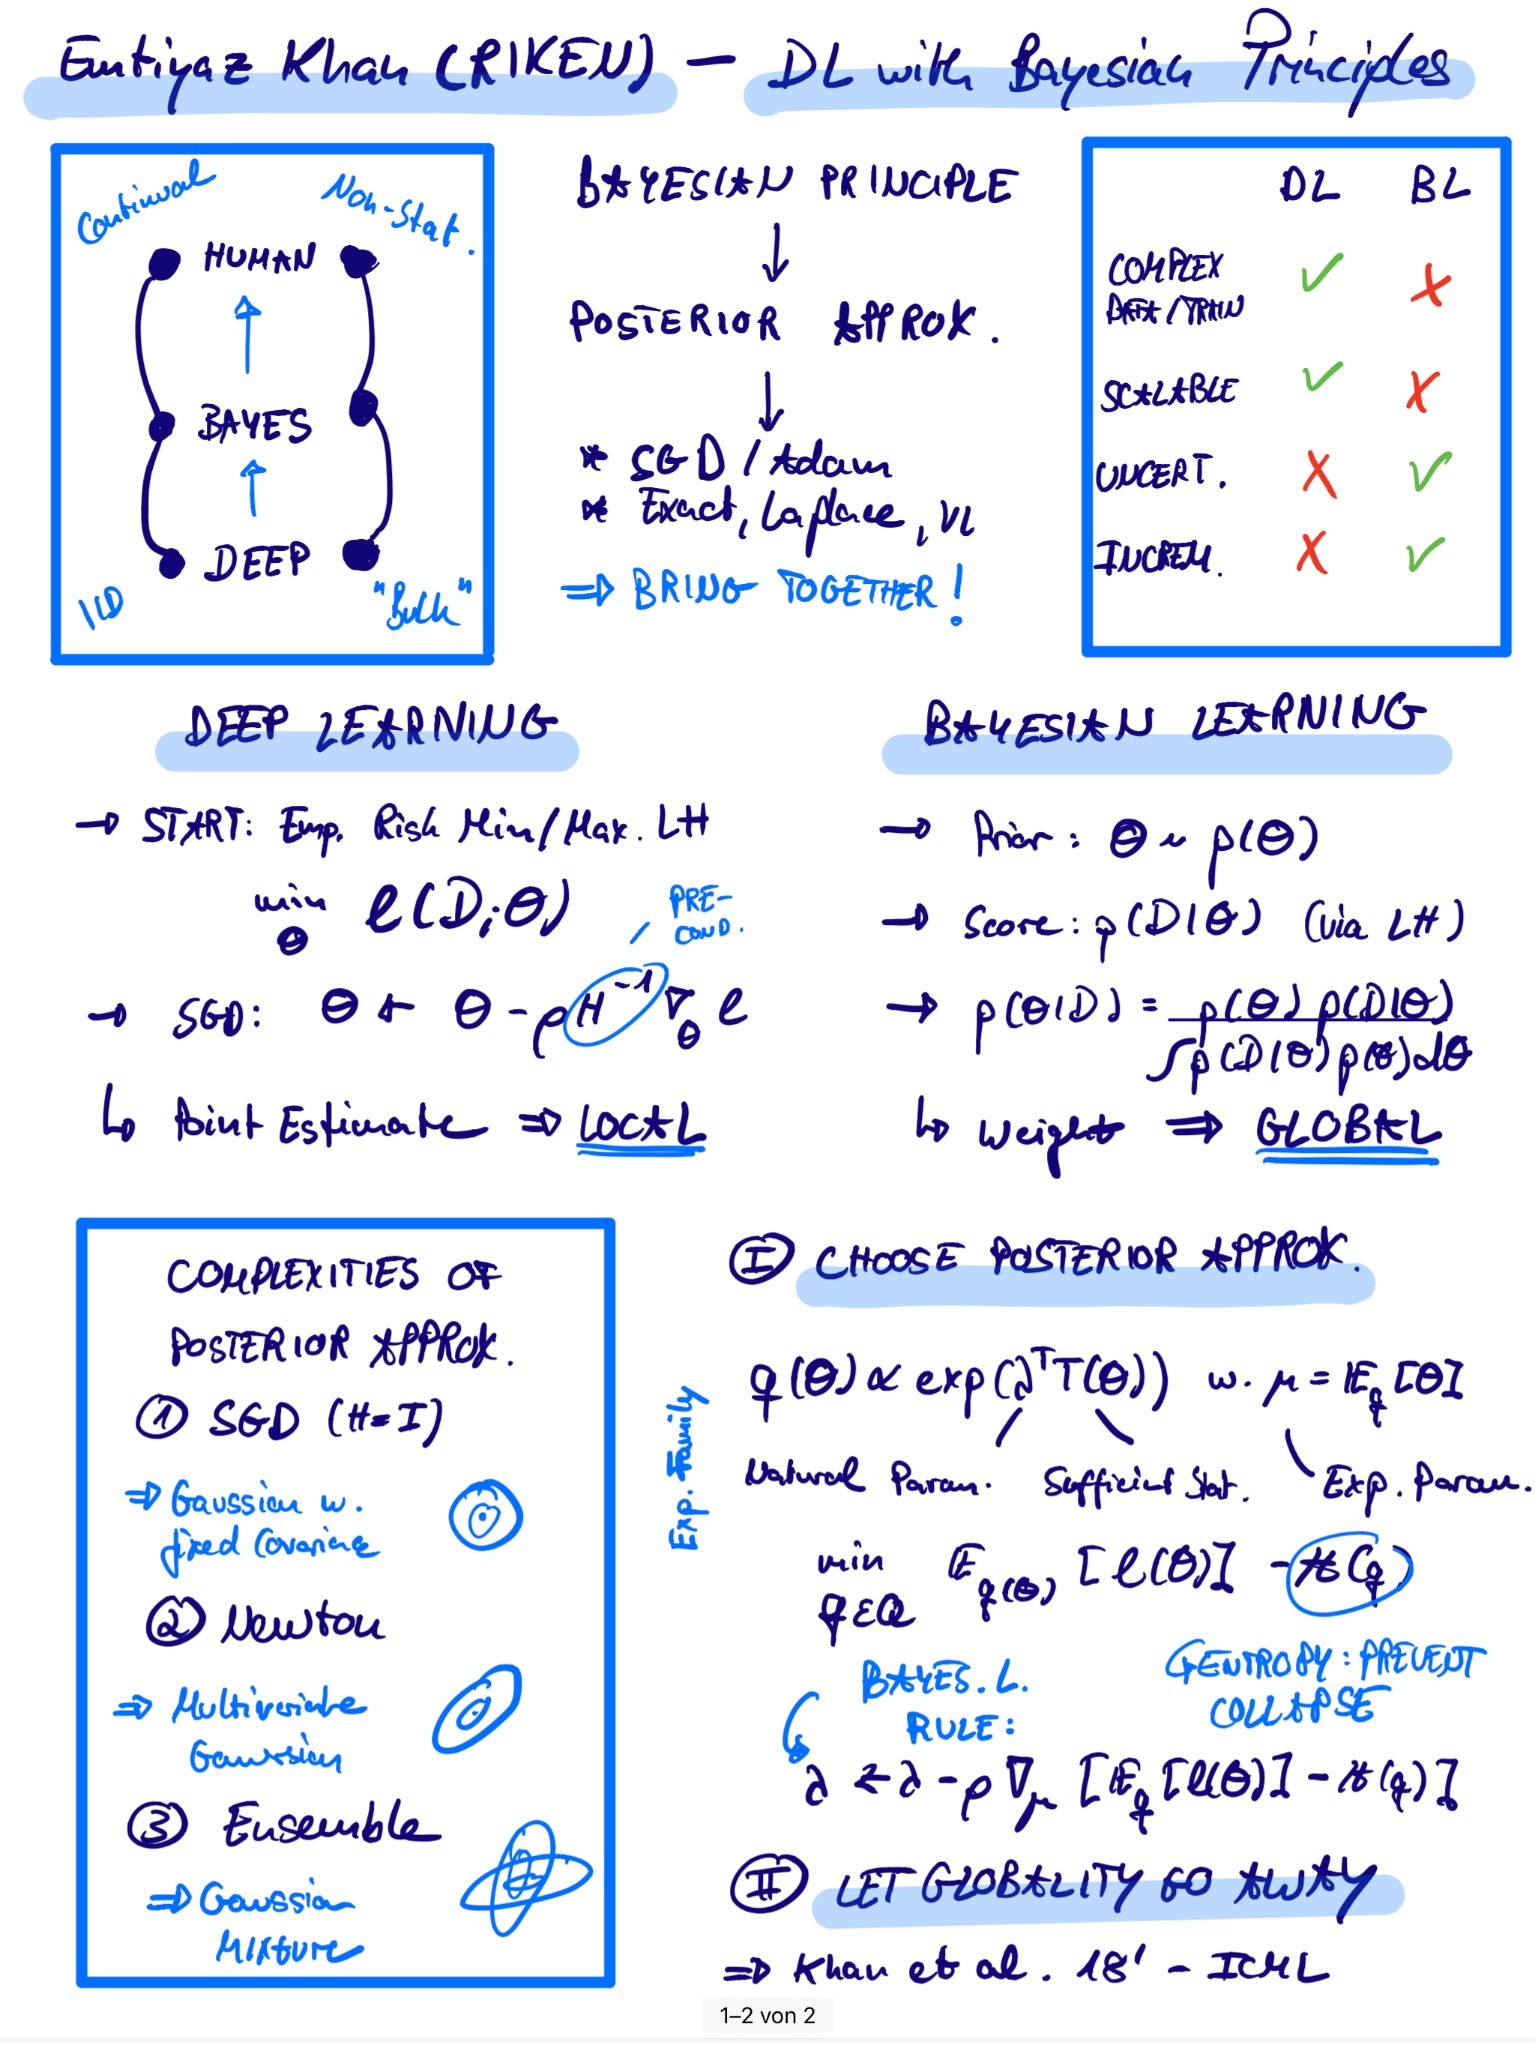 Emtiyaz Khan (RIKEN) — DL with Bayesian Principles
Continual
Non-Stat.
HUMAN
BAYES
DEEP
IID
"Bulk"
BAYESIAN PRINCIPLE
↓
POSTERIOR APPROX.
↓
* SGD / Adam
* Exact, Laplace, VI
⇒ BRING TOGETHER!
DL BL
COMPLEX ✓ ✗
DATA/TRAIN
SCALABLE ✓ ✗
UNCERT. ✗ ✓
INCREM. ✗ ✓
DEEP LEARNING
→ START: Emp. Risk Min/Max. LH
min ℓ(D;θ)
θ
PRE-
COND.
→ SGD: θ ← θ - ρ H⁻¹ ∇θ ℓ
↳ Point Estimate ⇒ LOCAL
BAYESIAN LEARNING
→ Prior: θ ~ p(θ)
→ Score: p(D|θ) (via LH)
→ p(θ|D) = p(θ) p(D|θ)
∫p(D|θ)p(θ)dθ
↳ Weight ⇒ GLOBAL
COMPLEXITIES OF
POSTERIOR APPROX.
① SGD (H=I)
⇒ Gaussian w.
fixed Covariance
② Newton
⇒ Multivariate
Gaussian
③ Ensemble
⇒ Gaussian
MIXTURE
Ⓘ CHOOSE POSTERIOR APPROX.
Exp. Family
q(θ) ∝ exp(λᵀT(θ)) w. μ = 𝔼q[θ]
Natural Param. Sufficient Stat. Exp. Param.
min 𝔼q(θ) [ℓ(θ)] - ℋ(q)
q∈Q
BAYES. L.
RULE:
↳ENTROPY: PREVENT
COLLAPSE
λ ← λ - ρ ∇μ [𝔼q[ℓ(θ)] - ℋ(q)]
Ⅱ LET GLOBALITY GO AWAY
⇒ Khan et al. 18' - ICML
1–2 von 2